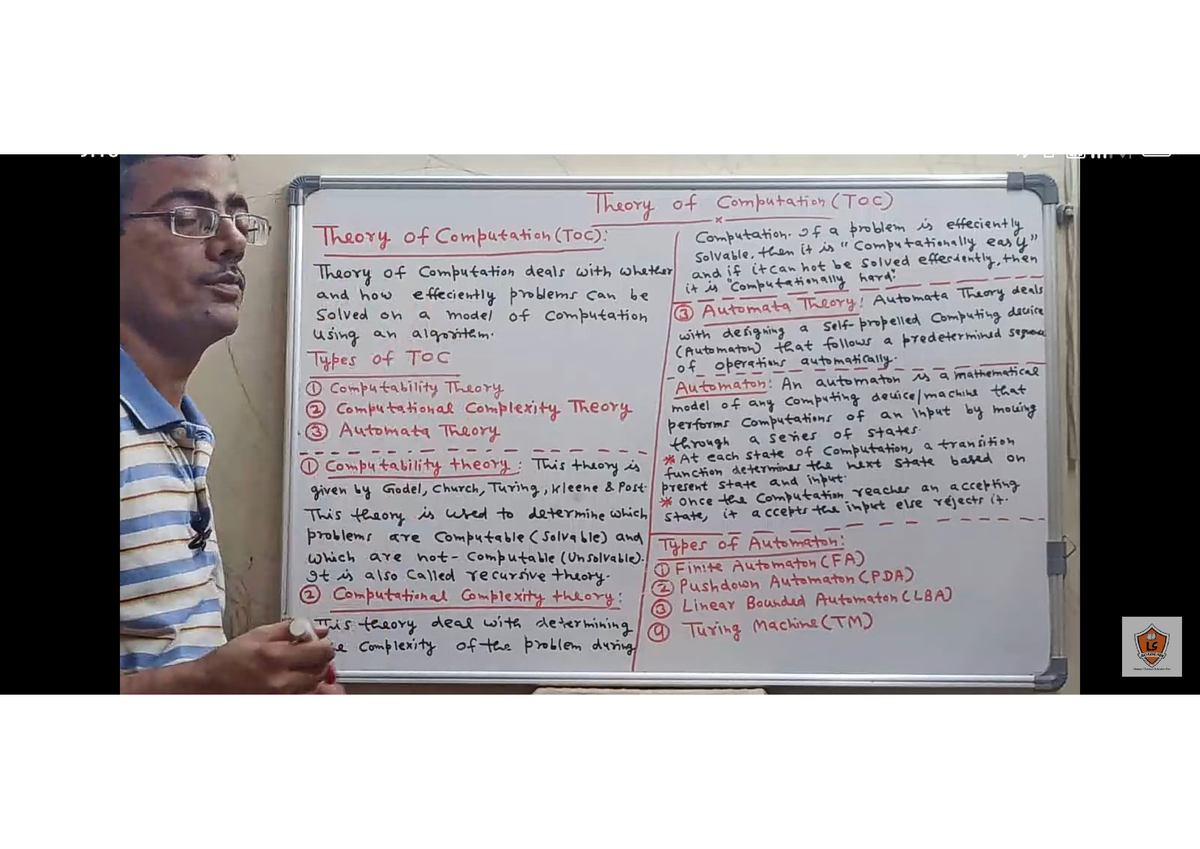 Theory of Computation (TOC)
Theory of Computation (TOC):
Theory of Computation deals with whether
and how effeciently problems can be
Solved on a model of Computation
Using an algorithm.
Types of TOC
① Computability Theory
② Computational Complexity Theory
③ Automata Theory
① Computability theory: This theory is
given by Godel, Church, Turing, Kleene & Post.
This theory is used to determine which
problems are Computable (Solvable) and
which are not-Computable (Unsolvable).
It is also Called recursive theory.
② Computational Complexity theory:
This theory deal with determining
Complexity of the problem during
Computation. If a problem is effeciently
Solvable, then it is "Computationally easy"
and if it can not be solved effeciently, then
it is "Computationally hard"
③ Automata Theory: Automata Theory deals
with designing a self-propelled Computing device
(Automaton) that follows a predetermined
of operations automatically.
Automaton: An automaton is a mathematical
model of any Computing device/machine that
performs Computations of an input by moving
through a series of states.
* At each state of Computation, a transition
function determines the next state based on
present state and input.
* Once the Computation reaches an accepting
state, it accepts the input else rejects it.
Types of Automaton:
① Finite Automaton (FA)
② Pushdown Automaton (PDA)
③ Linear Bounded Automaton (LBA)
④ Turing Machine (TM)
LS